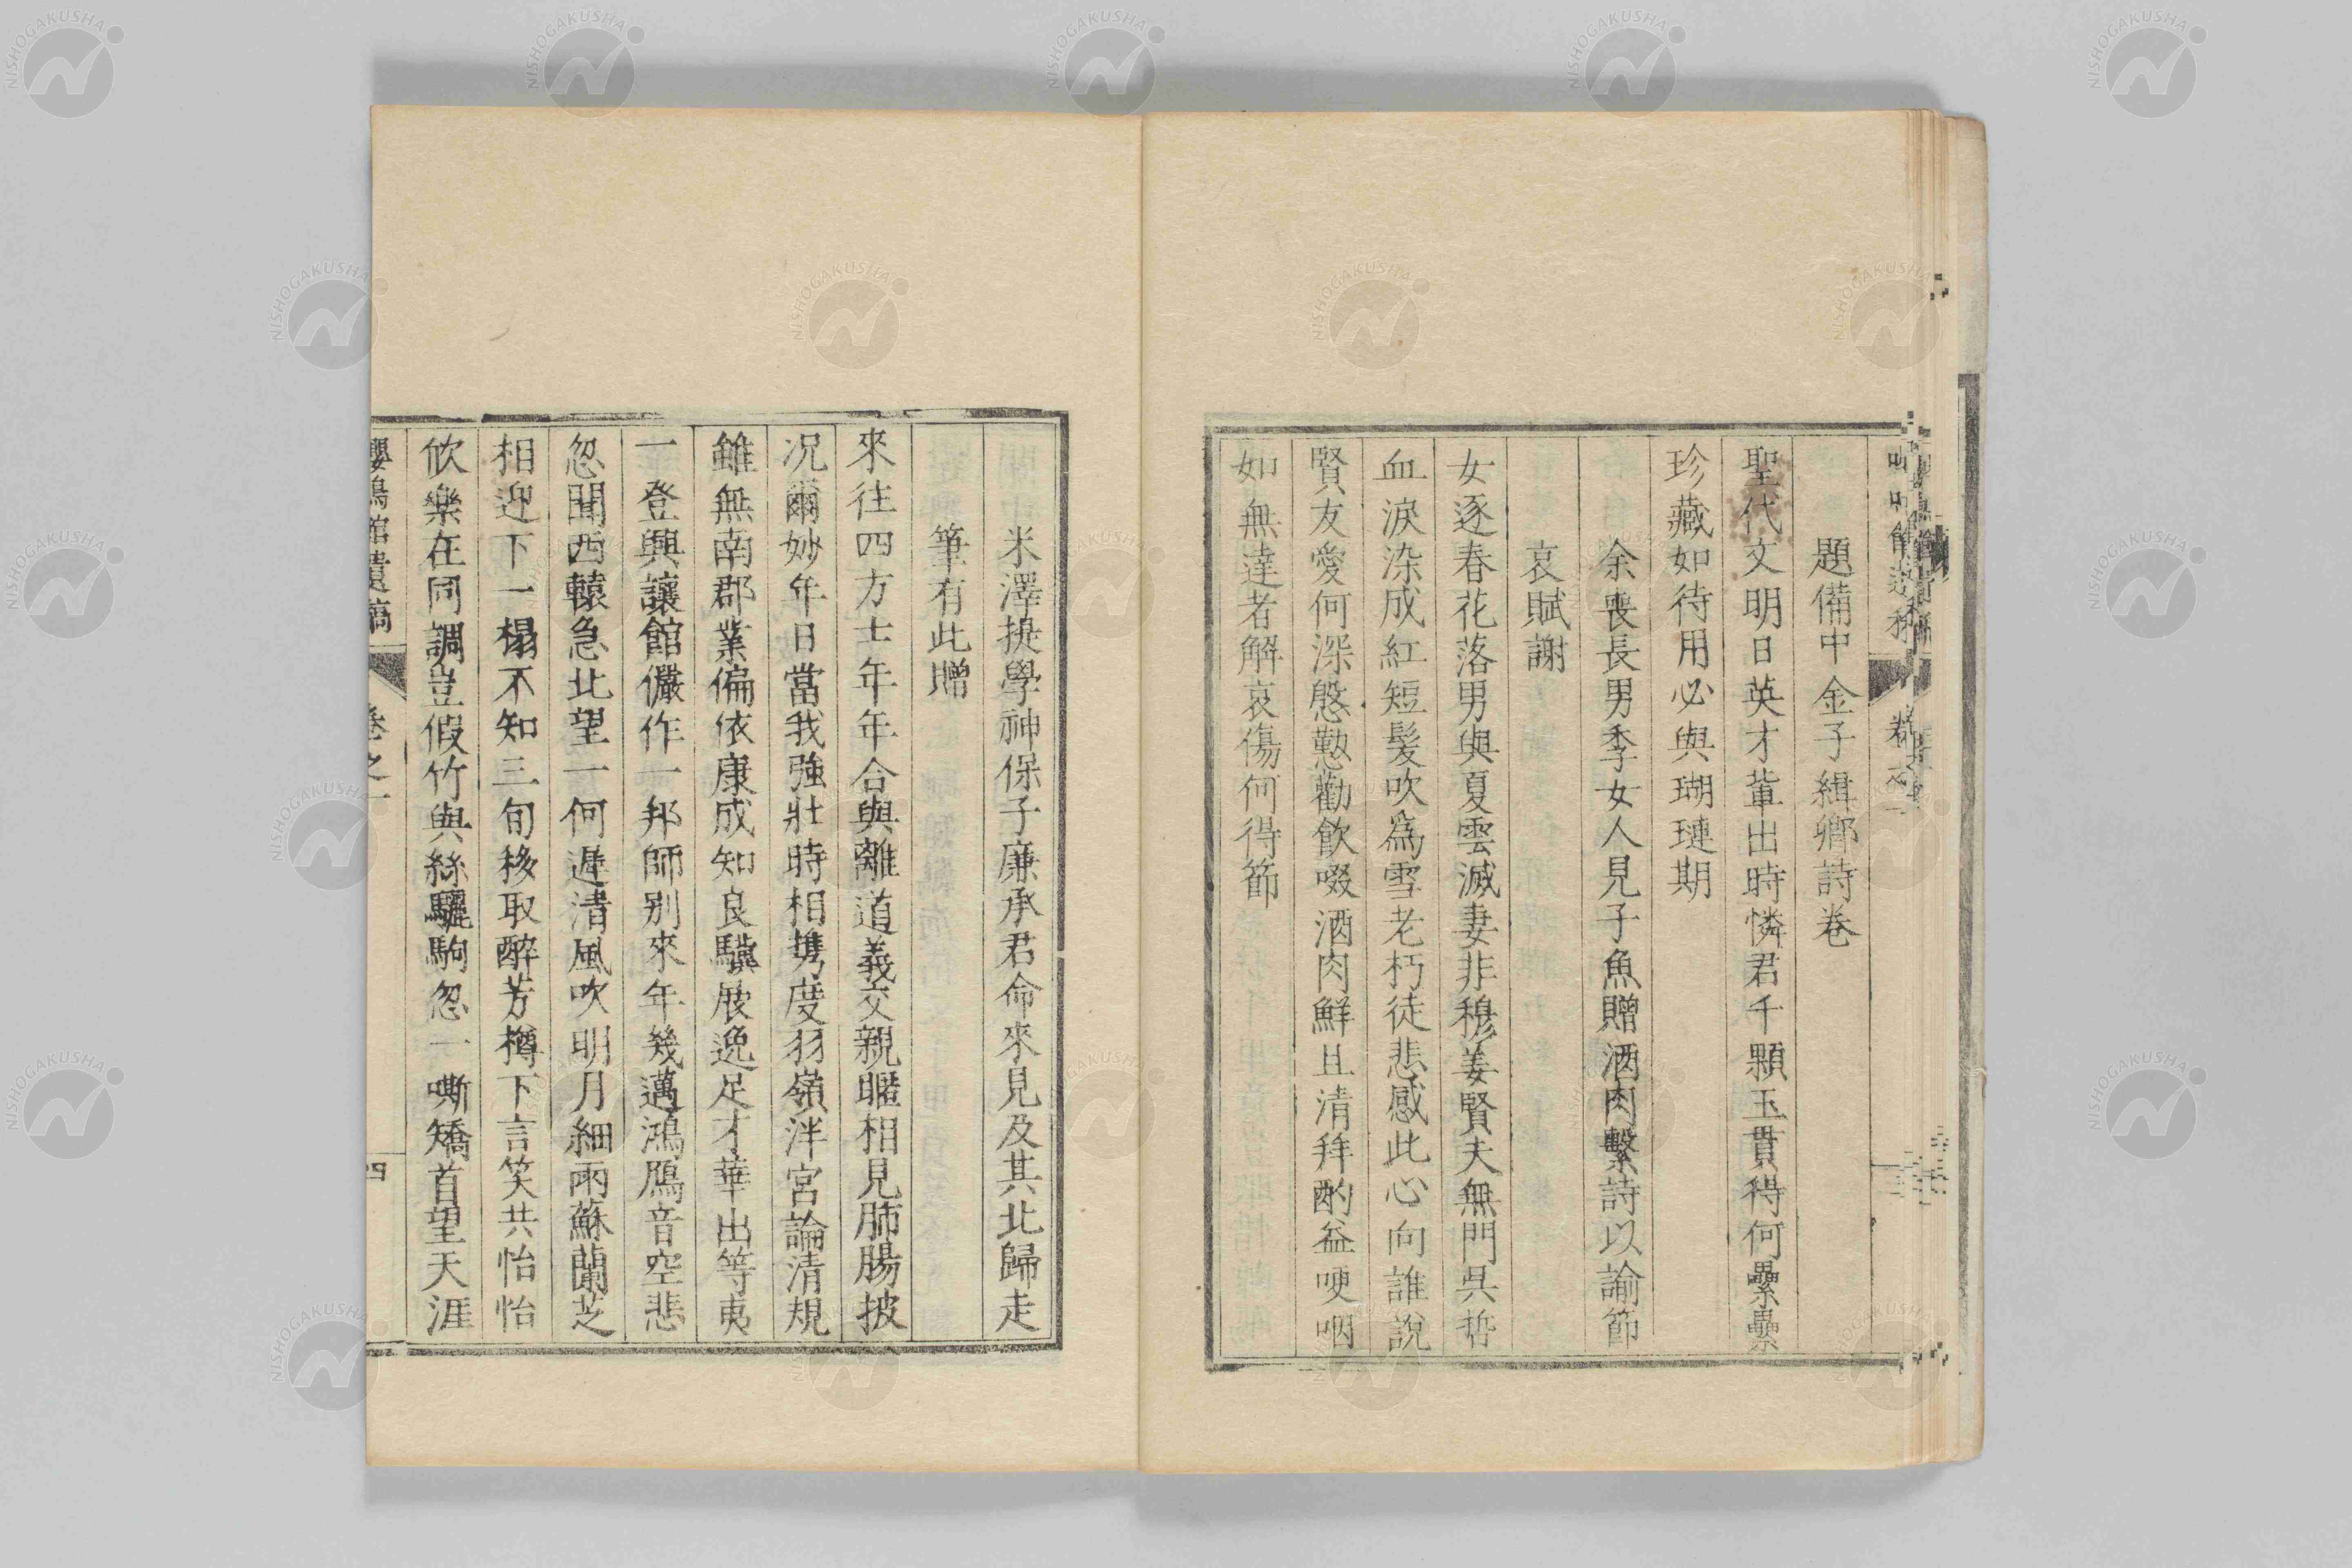 題備中金子緝卿詩卷
聖代文明日英才輩出時憐君千顆玉貫得何纍纍
珍藏如待用必與瑚璉期
余喪長男季女人見子魚贈酒肉繫詩以諭節
哀賦謝
女逐春花落男與夏雲滅妻非穆姜賢夫無門吳哲
血淚染成紅短髮吹為雪老朽徒悲感此心向誰說
賢友愛何深慇懃勸飲啜酒肉鮮且清拜酌益哽咽
如無達者解哀傷何得節
米澤提學神保子廉承君命來見及其北歸走
筆有此贈
來往四方士年年合與離道義交親暱相見肺腸披
况爾妙年日當我強壯時相携度羽嶺泮宮論清規
雖無南郡業偏依康成知良驥展逸足才華出等夷
一登興讓館儼作一邦師別來年幾邁鴻鴈音空悲
忽聞西轅急北望一何遲清風吹明月細雨蘇蘭芝
相迎下一榻不知三旬移取醉芳樽下言笑共怡怡
欣樂在同調豈假竹與絲驪駒忽一嘶矯首望天涯
嚶鳴館遺稿
卷之一
四
NISHOGAKUSHA